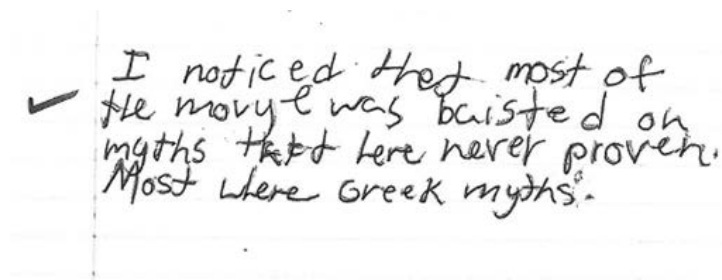 I noticed thet most of
the movye was baisted on
myths that here never proven.
Most where Greek myths.